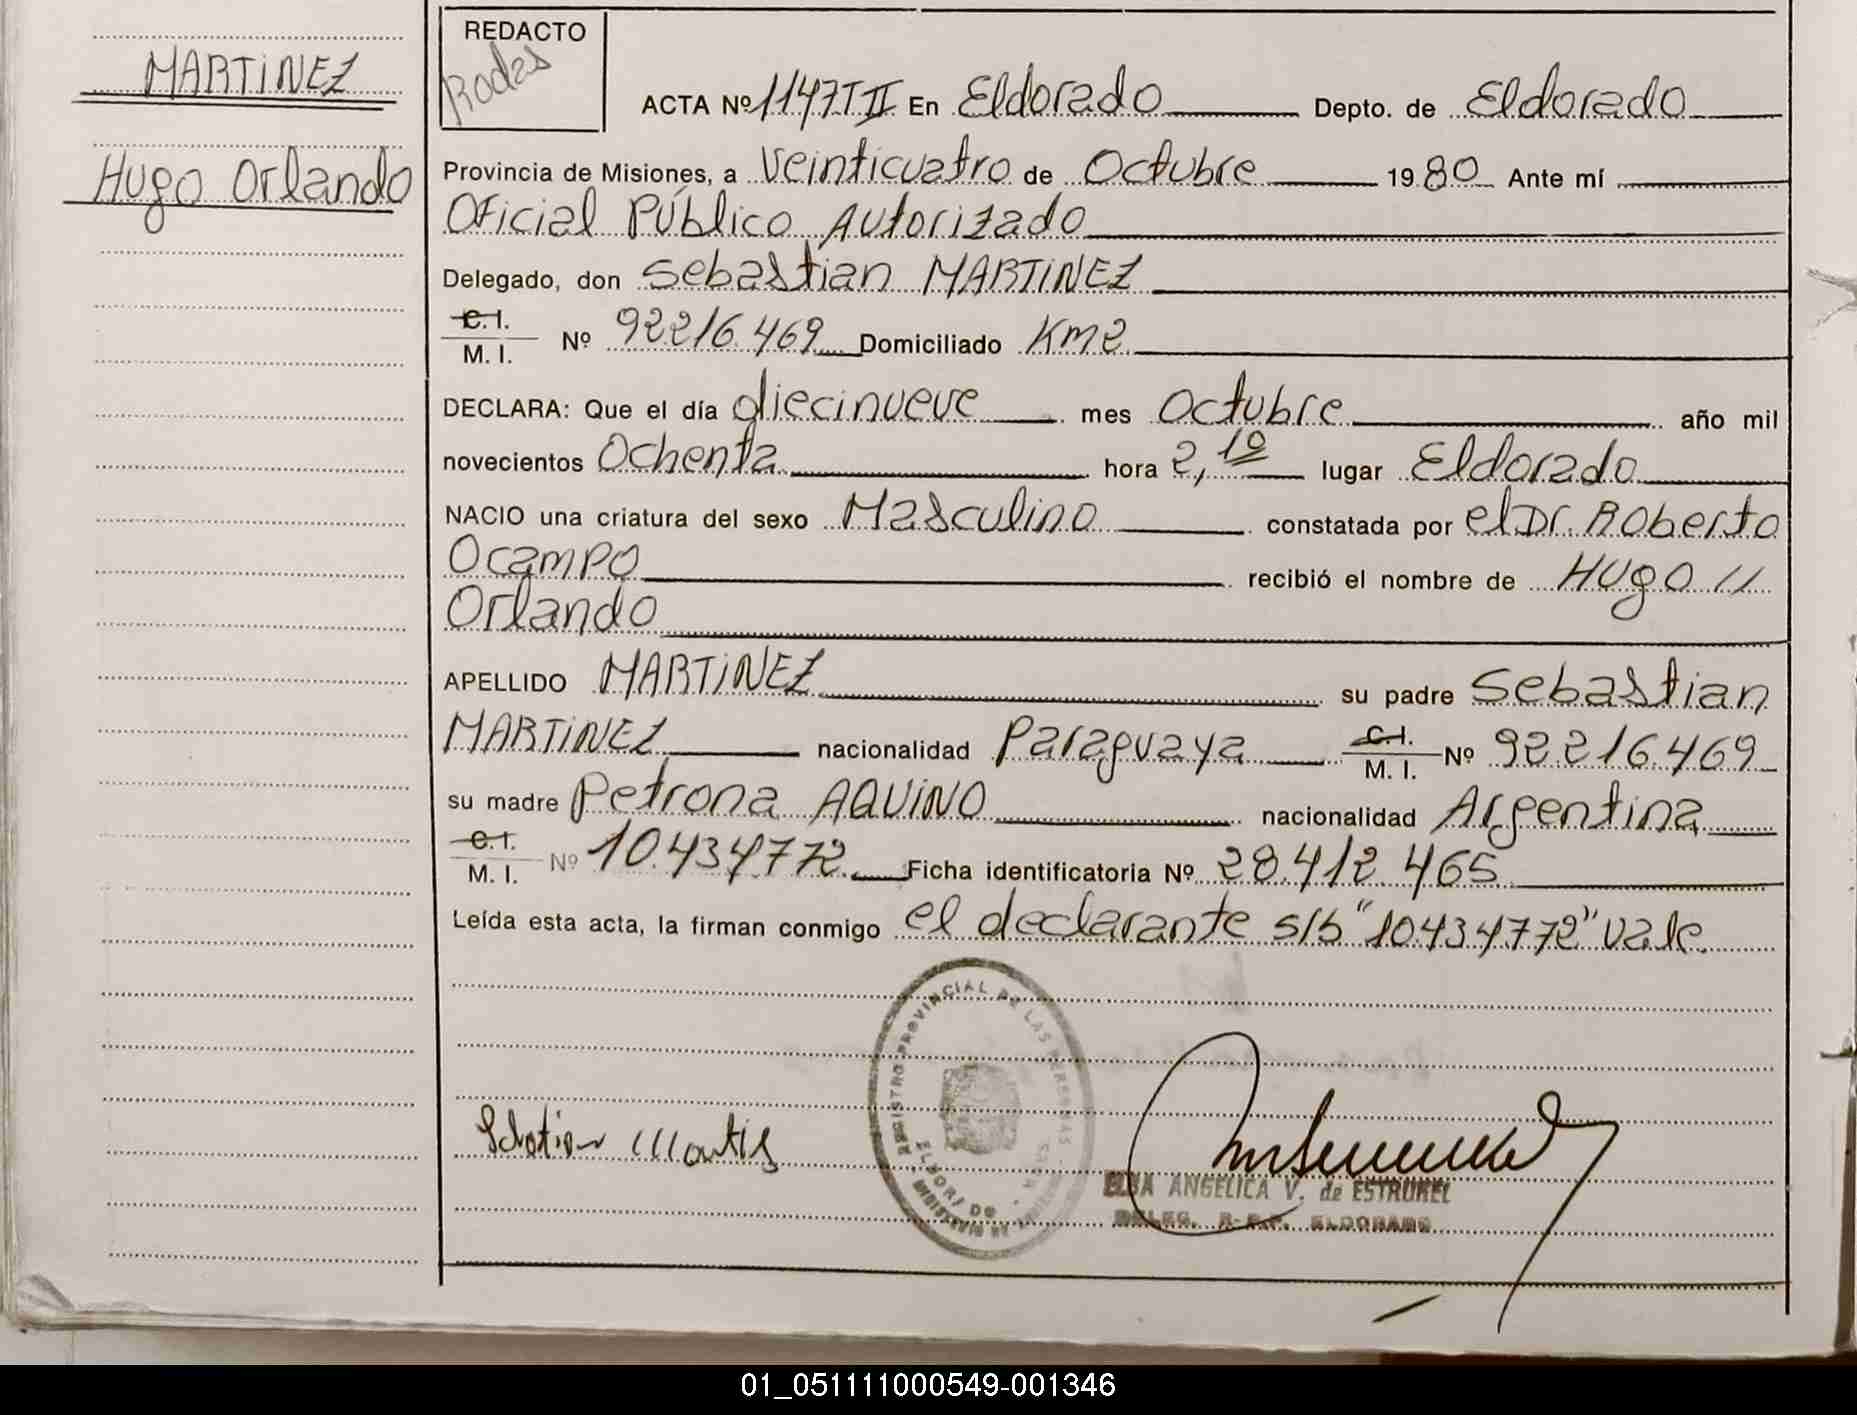 MARTINEZ
Hugo Orlando
REDACTO
Rodas
ACTA Nº 1147 T II En Eldorado Depto. de Eldorado
Provincia de Misiones, a Veinticuatro de Octubre 1980 Ante mí
Oficial Público Autorizado
Delegado, don Sebastian MARTINEZ
C.I.
M. I. Nº 92216.469 Domiciliado Km2
DECLARA: Que el día diecinueve mes Octubre año mil
novecientos Ochenta hora 2,10 lugar Eldorado
NACIO una criatura del sexo Masculino constatada por el Dr. Roberto
Ocampo recibió el nombre de Hugo //
Orlando
APELLIDO MARTINEZ su padre Sebastian
MARTINEZ nacionalidad Paraguaya C.I. M. I. Nº 92.216.469
su madre Petrona AQUINO nacionalidad Argentina
C.I.
M. I. Nº 10.434772 Ficha identificatoria Nº 28.412.465
Leída esta acta, la firman conmigo el declarante s/b "10434772" Vale
REGISTRO PROVINCIAL DE LAS PERSONAS
ELDORADO
ANGELICA V. de
DELEG. R. P. P. ELDORADO
01_051111000549-001346